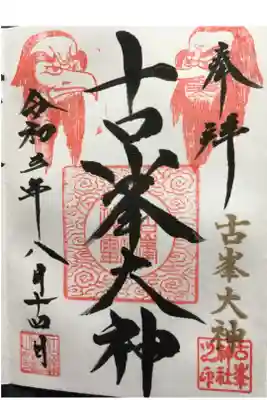 奉拝
古峯大神
古峯大神
令和五年八月十四日
古峯
神社
之印